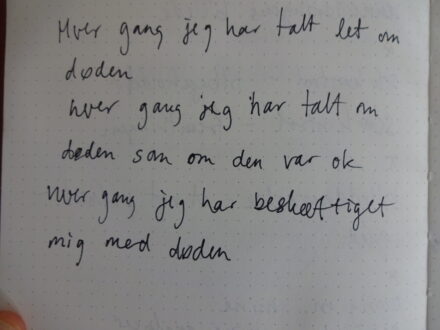 Hver gang jeg har talt let om
døden
hver gang jeg har talt om
døden som om den var ok
hver gang jeg har beskæftiget
mig med døden